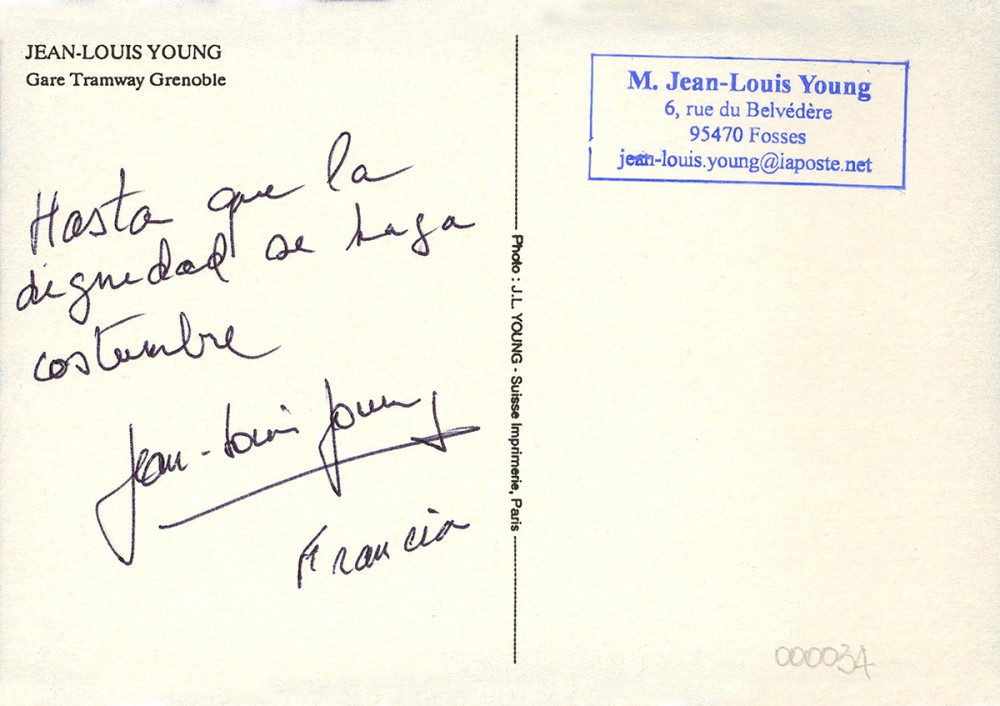 JEAN-LOUIS YOUNG
Gare Tramway Grenoble
Hasta que la
dignidad se haga
costumbre
Jean-Louis Young
Francia
Photo : J.L. YOUNG - Suisse Imprimerie, Paris
M. Jean-Louis Young
6, rue du Belvédère
95470 Fosses
jean-louis.young@laposte.net
000034